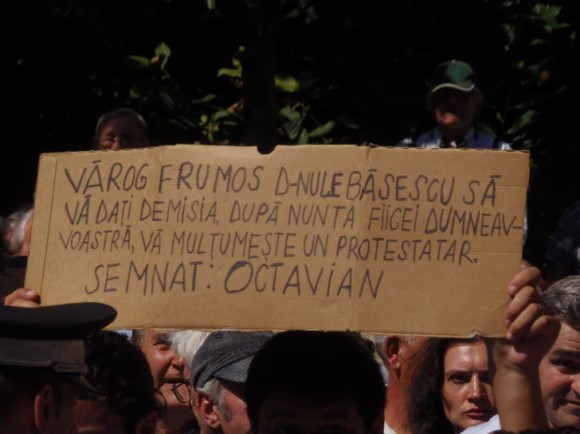 VĂROG FRUMOS D-NULE BĂSESCU SĂ
VĂ DAȚI DEMISIA, DUPĂ NUNTA FIICEI DUMNEAV-
VOASTRĂ, VĂ MULȚUMEȘTE UN PROTESTATAR.
SEMNAT: OCTAVIAN